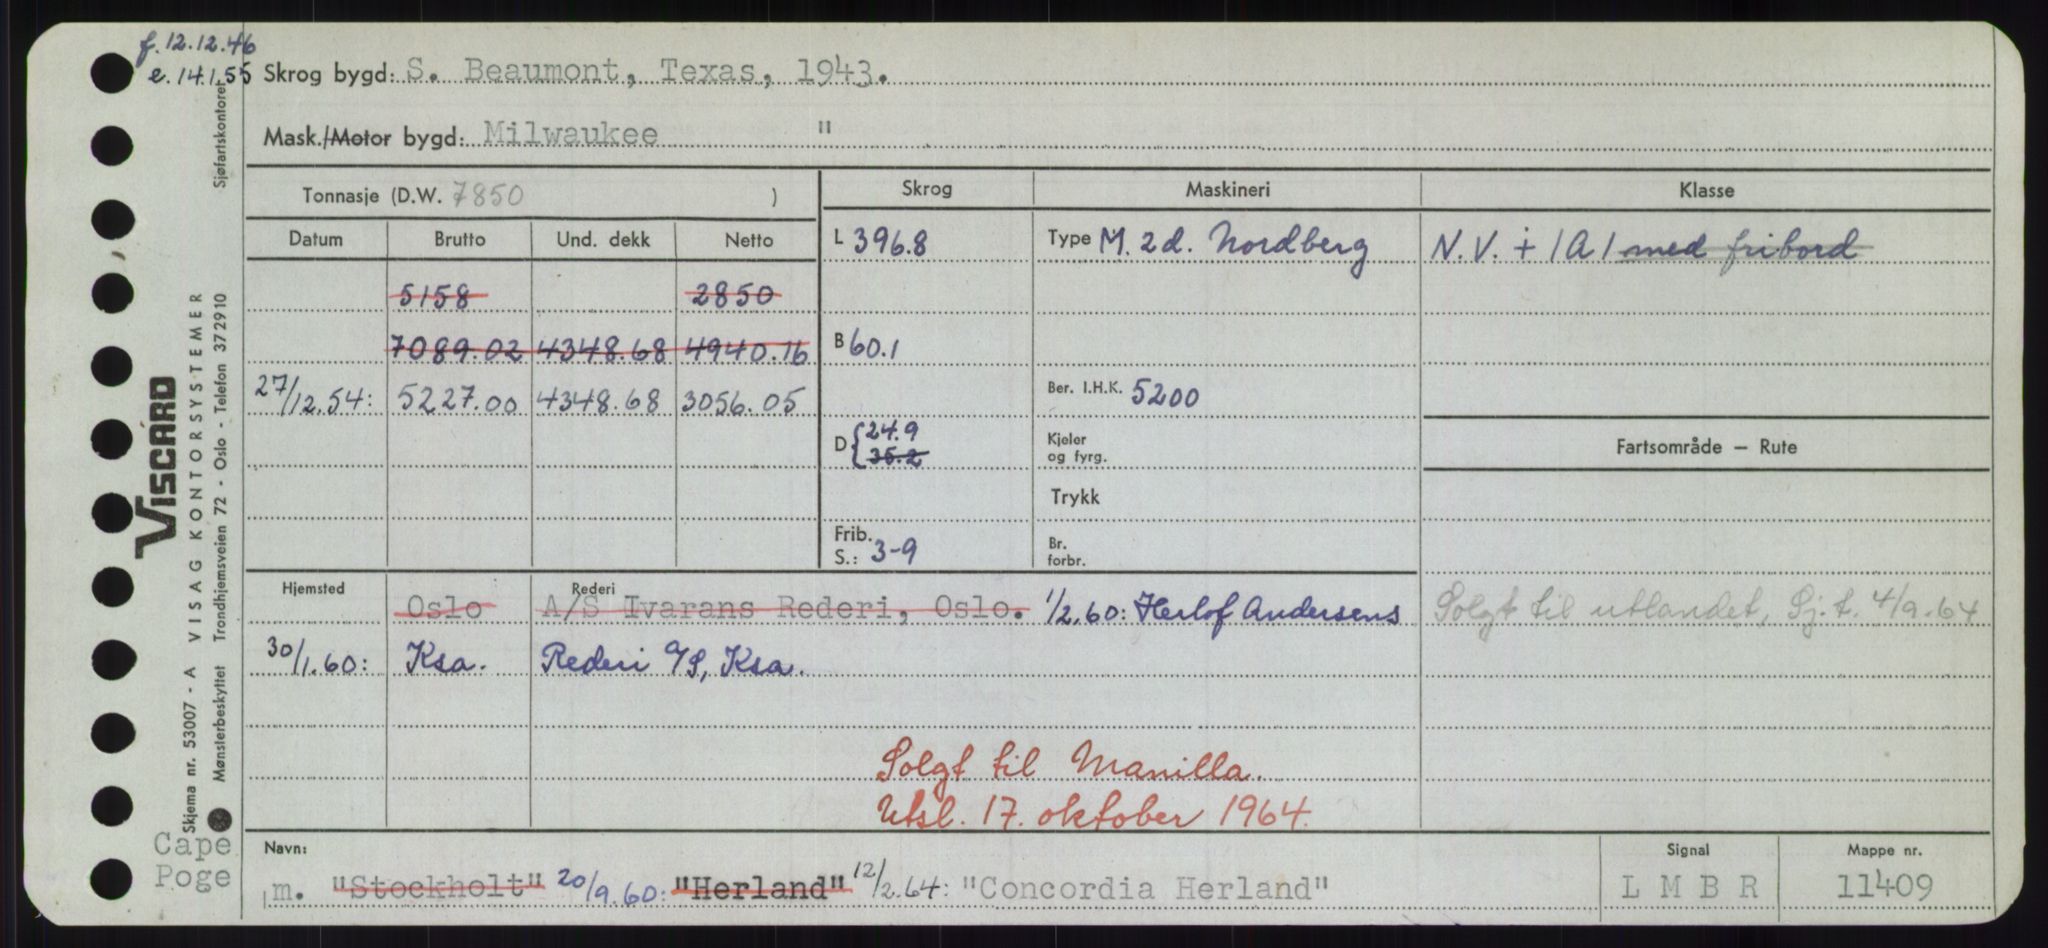 f. 12.12.46
e. 14.1.55
Skrog bygd: S. Beaumont, Texas, 1943.
Mask./Motor bygd: Milwaukee "
Tonnasje (D.W. 7850 )
Skrog
Maskineri
Klasse
Datum Brutto Und. dekk Netto
L 396.8
Type M. 2 d. Nordberg
N.V. + 1A1 med fribord
5158 2850
7089.02 4348.68 4940.16
B 60.1
27/12.54: 5227.00 4348.68 3056.05
Ber. I.H.K. 5200
D { 24.9
35.2
Kjeler
og fyrg.
Fartsområde — Rute
Trykk
Frib.
S.: 3-9
Br.
forbr.
Hjemsted
Rederi
Oslo A/S Ivarans Rederi, Oslo. 1/2.60: Herlof Andersens
Solgt til utlandet, Sj.t. 4/9.64
30/1.60: Ksa. Rederi A/S, Ksa.
Solgt til Manilla.
Utsl. 17. oktober 1964.
Cape
Poge
Navn:
m. "Stockholt" 20/9.60: "Herland" 12/2.64: "Concordia Herland"
Signal
L M B R
Mappe nr.
11409
VISCARD
Skjema nr. 53007 - A VISAG KONTORSYSTEMER
Mønsterbeskyttet Trondhjemsveien 72 - Oslo - Telefon 372910
Sjøfartskontoret